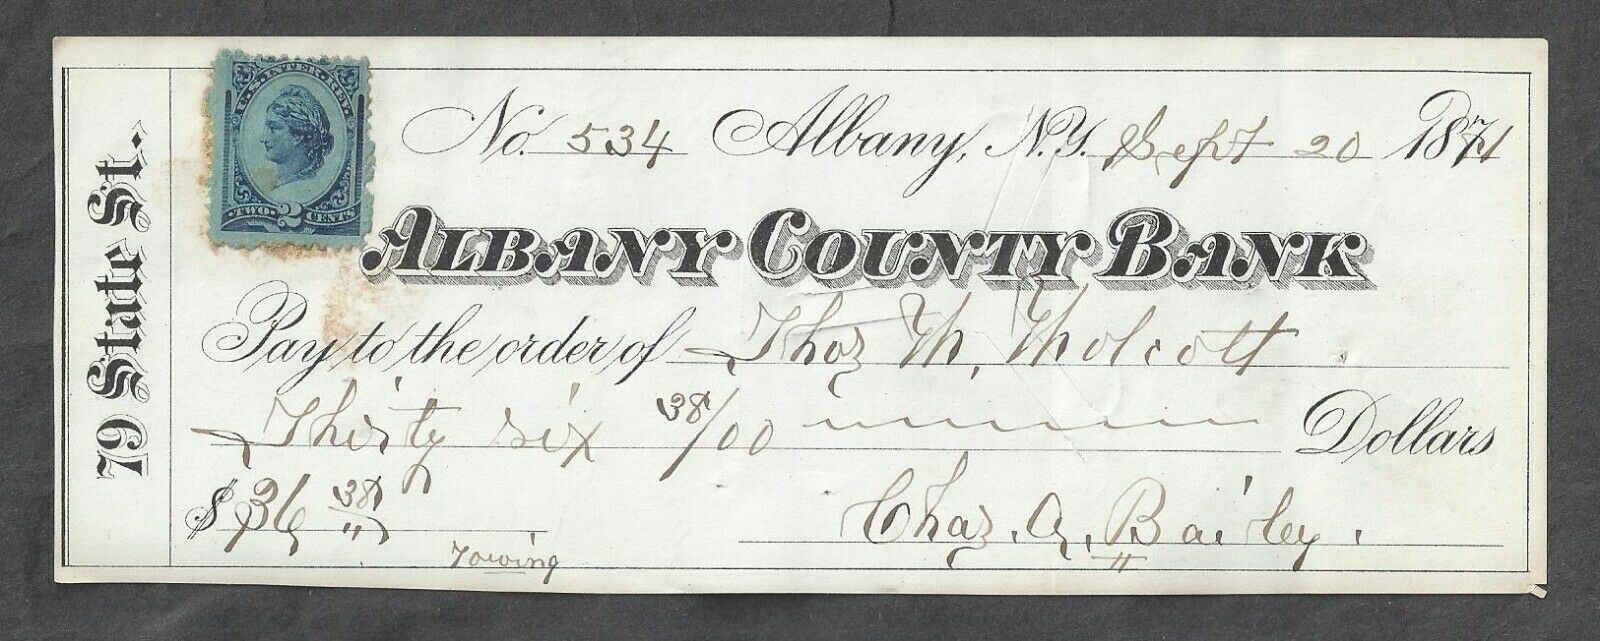 U.S. INTER. REV.
TWO 2 CENTS
79 State St.,
No. 534 Albany, N.Y. Sept 20 1871
ALBANY COUNTY BANK
Pay to the order of Thos M. Wolcott
Thirty six 38/00 Dollars
$36 38/"
Chas. A. Bailey.
Towing